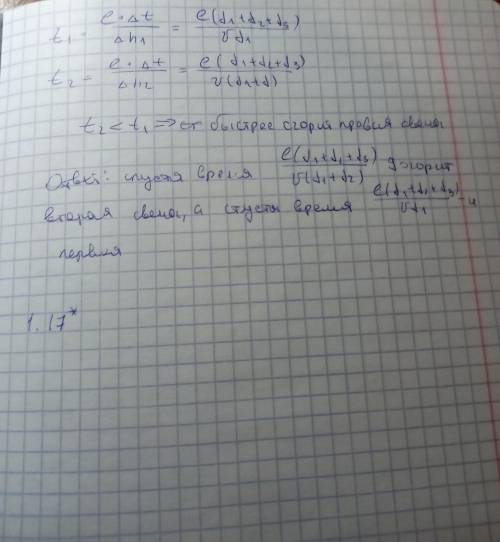 t₁ = e·Δt/Δh₁ = e(d₁+d₂+d₃)/(υd₁)
t₂ = e·Δt/Δh₂ = e(d₁+d₂+d₃)/(υ(d₁+d))
t₂ < t₁ ⇒ быстрее сгорит правая свеча
Ответ: спустя время e(d₁+d₂+d₃)/(υ(d₁+d₂)) догорит
вторая свеча, а спустя время e(d₁+d₂+d₃)/(υd₁) -
первая
1.17*